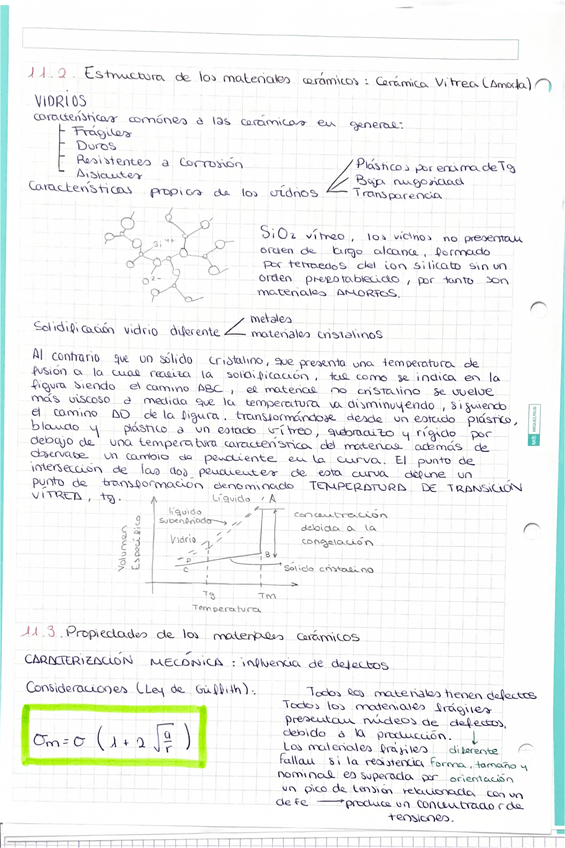 11.2. Estructura de los materiales cerámicos: Cerámica Vítrea (Amorfa)
VIDRIOS
características comúnes a las cerámicas en general:
Frágiles
Duros
Resistentes a Corrosión
Aislantes
Características propias de los vidrios
Plásticos por encima de Tg
Baja rugosidad
Transparencia
Si 4+
O 2-
SiO2 vítreo, los vidrios no presentan
orden de largo alcance, formado
por tetraedos del ion silicato sin un
orden preestablecido, por tanto son
materiales AMORFOS.
Solidificación vidrio diferente
metales
materiales cristalinos
Al contrario que un sólido cristalino, que presenta una temperatura de
fusión a la cual realiza la solidificación, tal como se indica en la
figura siendo el camino ABC, el material no cristalino se vuelve
más viscoso a medida que la temperatura va disminuyendo, siguiendo
el camino AD de la figura, transformándose desde un estado plástico,
blando y plástico a un estado vítreo, quebradizo y rígido por
debajo de una temperatura característica del material además de
observarse un cambio de pendiente en la curva. El punto de
intersección de las dos pendientes de esta curva define un
punto de transformación denominado TEMPERATURA DE TRANSICIÓN
VÍTREA, tg.
Volumen Específico
Líquido
A
líquido
subenfriado
Vidrio
D
C
B
concentración
debida a la
congelación
Sólido cristalino
Tg
Tm
Temperatura
11.3. Propiedades de los materiales cerámicos
CARACTERIZACIÓN MECÁNICA: influencia de defectos
Consideraciones (Ley de Griffith):
σm = σ (1 + 2 √a/r)
Todos los materiales tienen defectos
Todos los materiales frágiles
presentan núcleos de defectos,
debido a la producción.
Los materiales frágiles diferente
fallan si la resistencia forma, tamaño y
nominal es superada por orientación
un pico de tensión relacionada con un
defe → produce un concentrador de
tensiones.
MIQUELRIUS